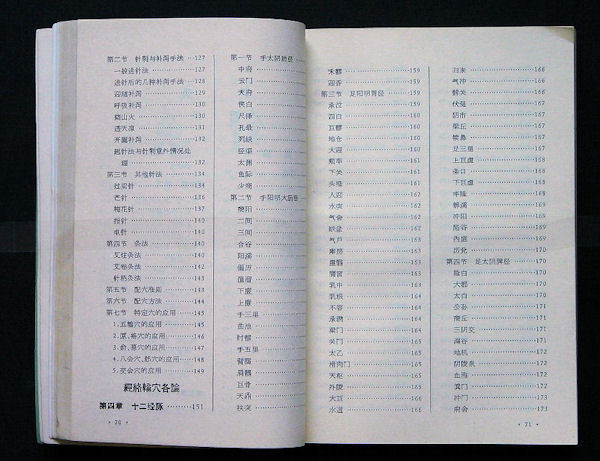 第二节 针刺与补泻手法 ··127
一般进针法 ··127
进针后的几种补泻手法 ··128
迎随补泻 ··130
呼吸补泻 ··130
烧山火 ··131
透天凉 ··131
开阖补泻 ··132
退针法与针刺意外情况处
理 ··132
第三节 其他针法 ··134
过梁针 ··134
芒针 ··136
梅花针 ··136
指针 ··140
电针 ··140
第四节 灸法 ··140
艾炷灸法 ··140
艾卷灸法 ··142
针柄灸法 ··142
第五节 配穴准则 ··143
第六节 配穴方法 ··144
第七节 特定穴的应用 ··145
1.五输穴的应用 ··145
2.原、络穴的应用 ··146
3.俞、募穴的应用 ··147
4.八会穴、郄穴的应用 ··148
5.交会穴的应用 ··149
经络输穴各论
第四章 十二经脉 ··151
· 70 ·
第一节 手太阴肺经
中府
云门
天府
侠白
尺泽
孔最
列缺
经渠
太渊
鱼际
少商
第二节 手阳明大肠经
商阳
二间
三间
合谷
阳溪
偏历
温溜
下廉
上廉
手三里
曲池
肘髎
手五里
臂臑
肩髃
巨骨
天鼎
扶突
禾髎 ··159
迎香 ··159
第三节 足阳明胃经 ··160
承泣 ··160
四白 ··160
巨髎 ··160
地仓 ··160
大迎 ··160
颊车 ··161
下关 ··161
头维 ··161
人迎 ··161
水突 ··161
气舍 ··162
缺盆 ··162
气户 ··162
库房 ··163
屋翳 ··163
膺窗 ··163
乳中 ··163
乳根 ··163
不容 ··164
承满 ··164
梁门 ··164
关门 ··164
太乙 ··164
滑肉门 ··165
天枢 ··165
外陵 ··165
大巨 ··165
水道 ··166
归来 ··166
气冲 ··166
髀关 ··166
伏兔 ··167
阴市 ··167
梁丘 ··167
犊鼻 ··167
足三里 ··167
上巨虚 ··168
条口 ··168
下巨虚 ··168
丰隆 ··168
解溪 ··169
冲阳 ··169
陷谷 ··169
内庭 ··169
厉兑 ··170
第四节 足太阴脾经 ··170
隐白 ··170
大都 ··170
太白 ··170
公孙 ··171
商丘 ··171
三阴交 ··171
漏谷 ··171
地机 ··172
阴陵泉 ··172
血海 ··172
箕门 ··172
冲门 ··173
府舍 ··173
· 71 ·